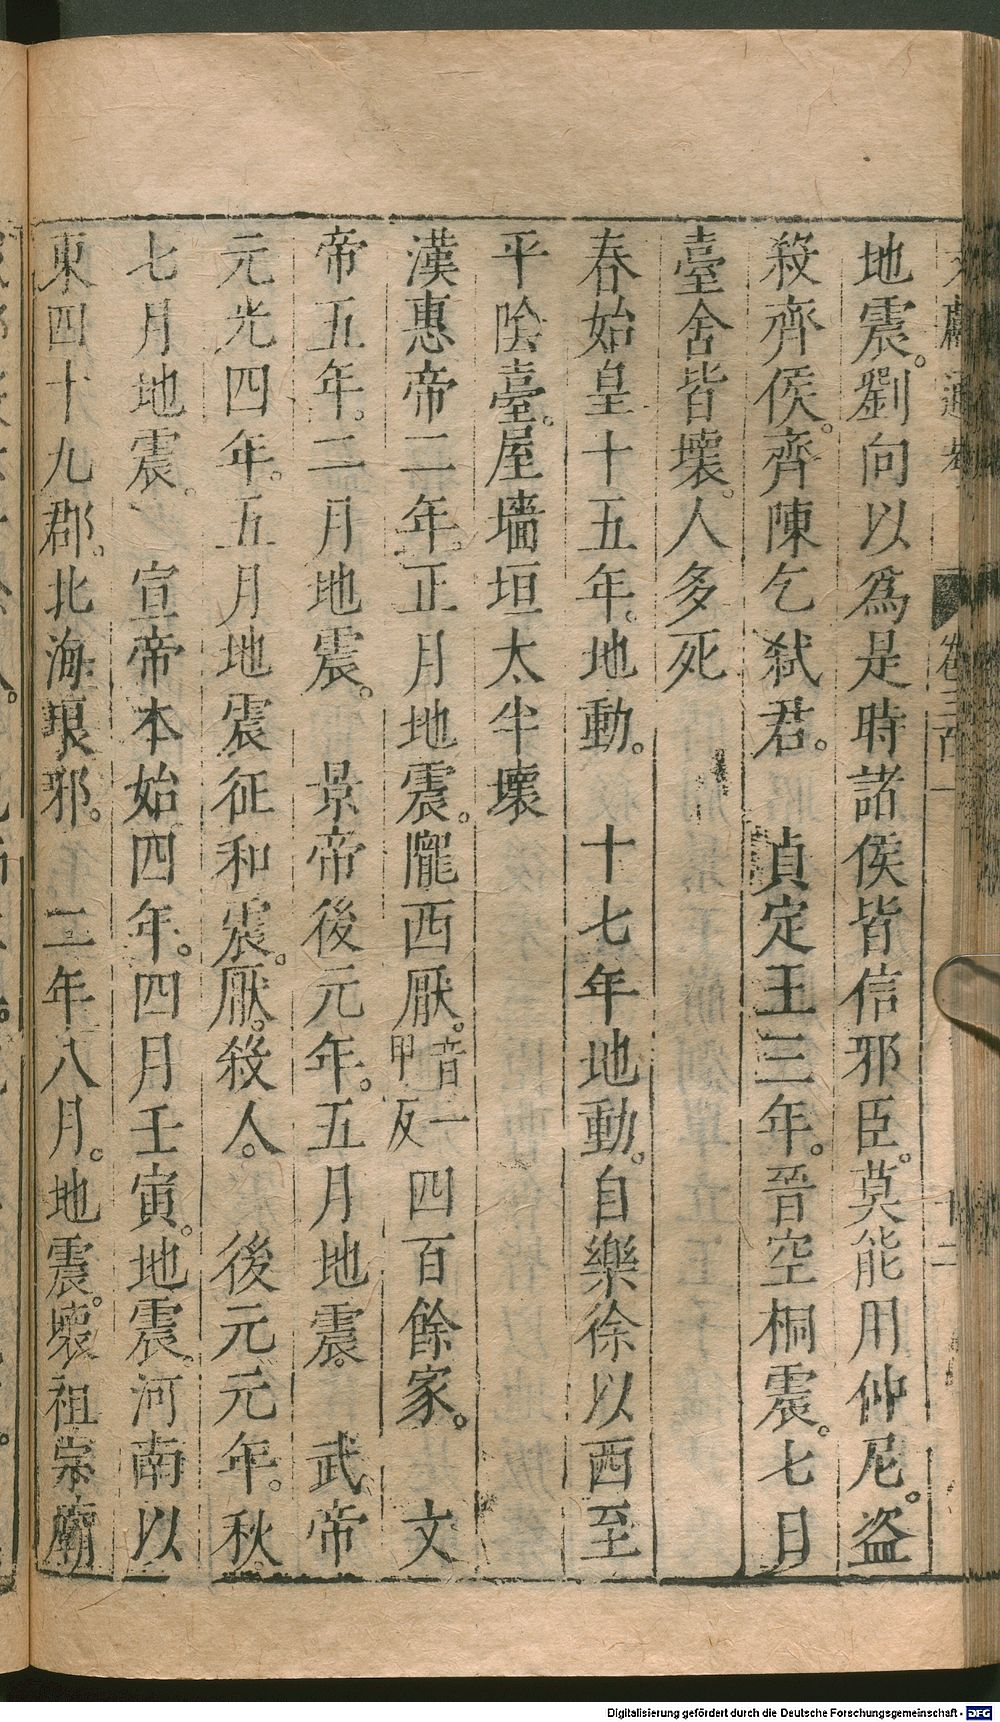 地震。劉向以爲是時諸侯皆信邪臣。莫能用仲尼。盗
殺齊侯。齊陳乞弑君。 貞定王三年。晉空桐震。七日
臺舍皆壞。人多死
春始皇十五年。地動。 十七年地動。自樂徐以西至
平陰。臺屋墻垣太半壞
漢惠帝二年。正月地震。隴西厭。音一甲反四百餘家。 文
帝五年。二月地震。 景帝後元年。五月地震。 武帝
元光四年。五月地震征和震。厭。殺人。 後元元年。秋。
七月地震。 宣帝本始四年。四月壬寅。地震。河南以
東四十九郡。北海琅邪。 二年八月。地震。壞祖宗廟
卷三百一
十二
Digitalisierung gefördert durch die Deutsche Forschungsgemeinschaft - DFG